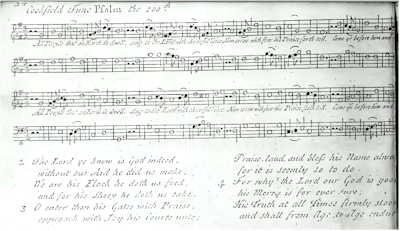 Cockfield Tune Psalm the 100th
All People that on Earth do dwell, Sing to the Lord with chearful Voice, Him serve with fear his Praise forth tell, Come ye before him and
All People that on Earth do dwell, Sing to the Lord with chearful Voice, Him serve with fear his Praise forth tell, Come ye before him and
2 The Lord ye know is God indeed,
without our Aid he did us make,
We are his Flock he doth us feed,
and for his Sheep he doth us take.
3 O enter then his Gates with Praise,
approach with Joy his Courts unto;
Praise, laud, and bless his Name alway
for it is seemly so to do.
4 For why? the Lord our God is good
his Mercy is for ever sure;
His Truth at all Times firmly stood
and shall from Age to Age endure